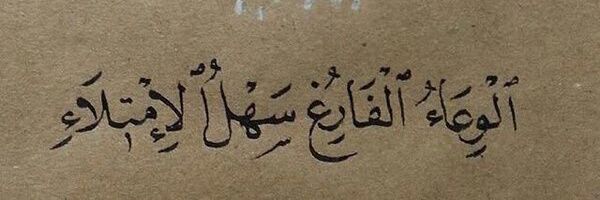 ٱلْوِعَاءُ ٱلْفَارِغُ سَهْلُ ٱلْاِمْتِلَاءِ